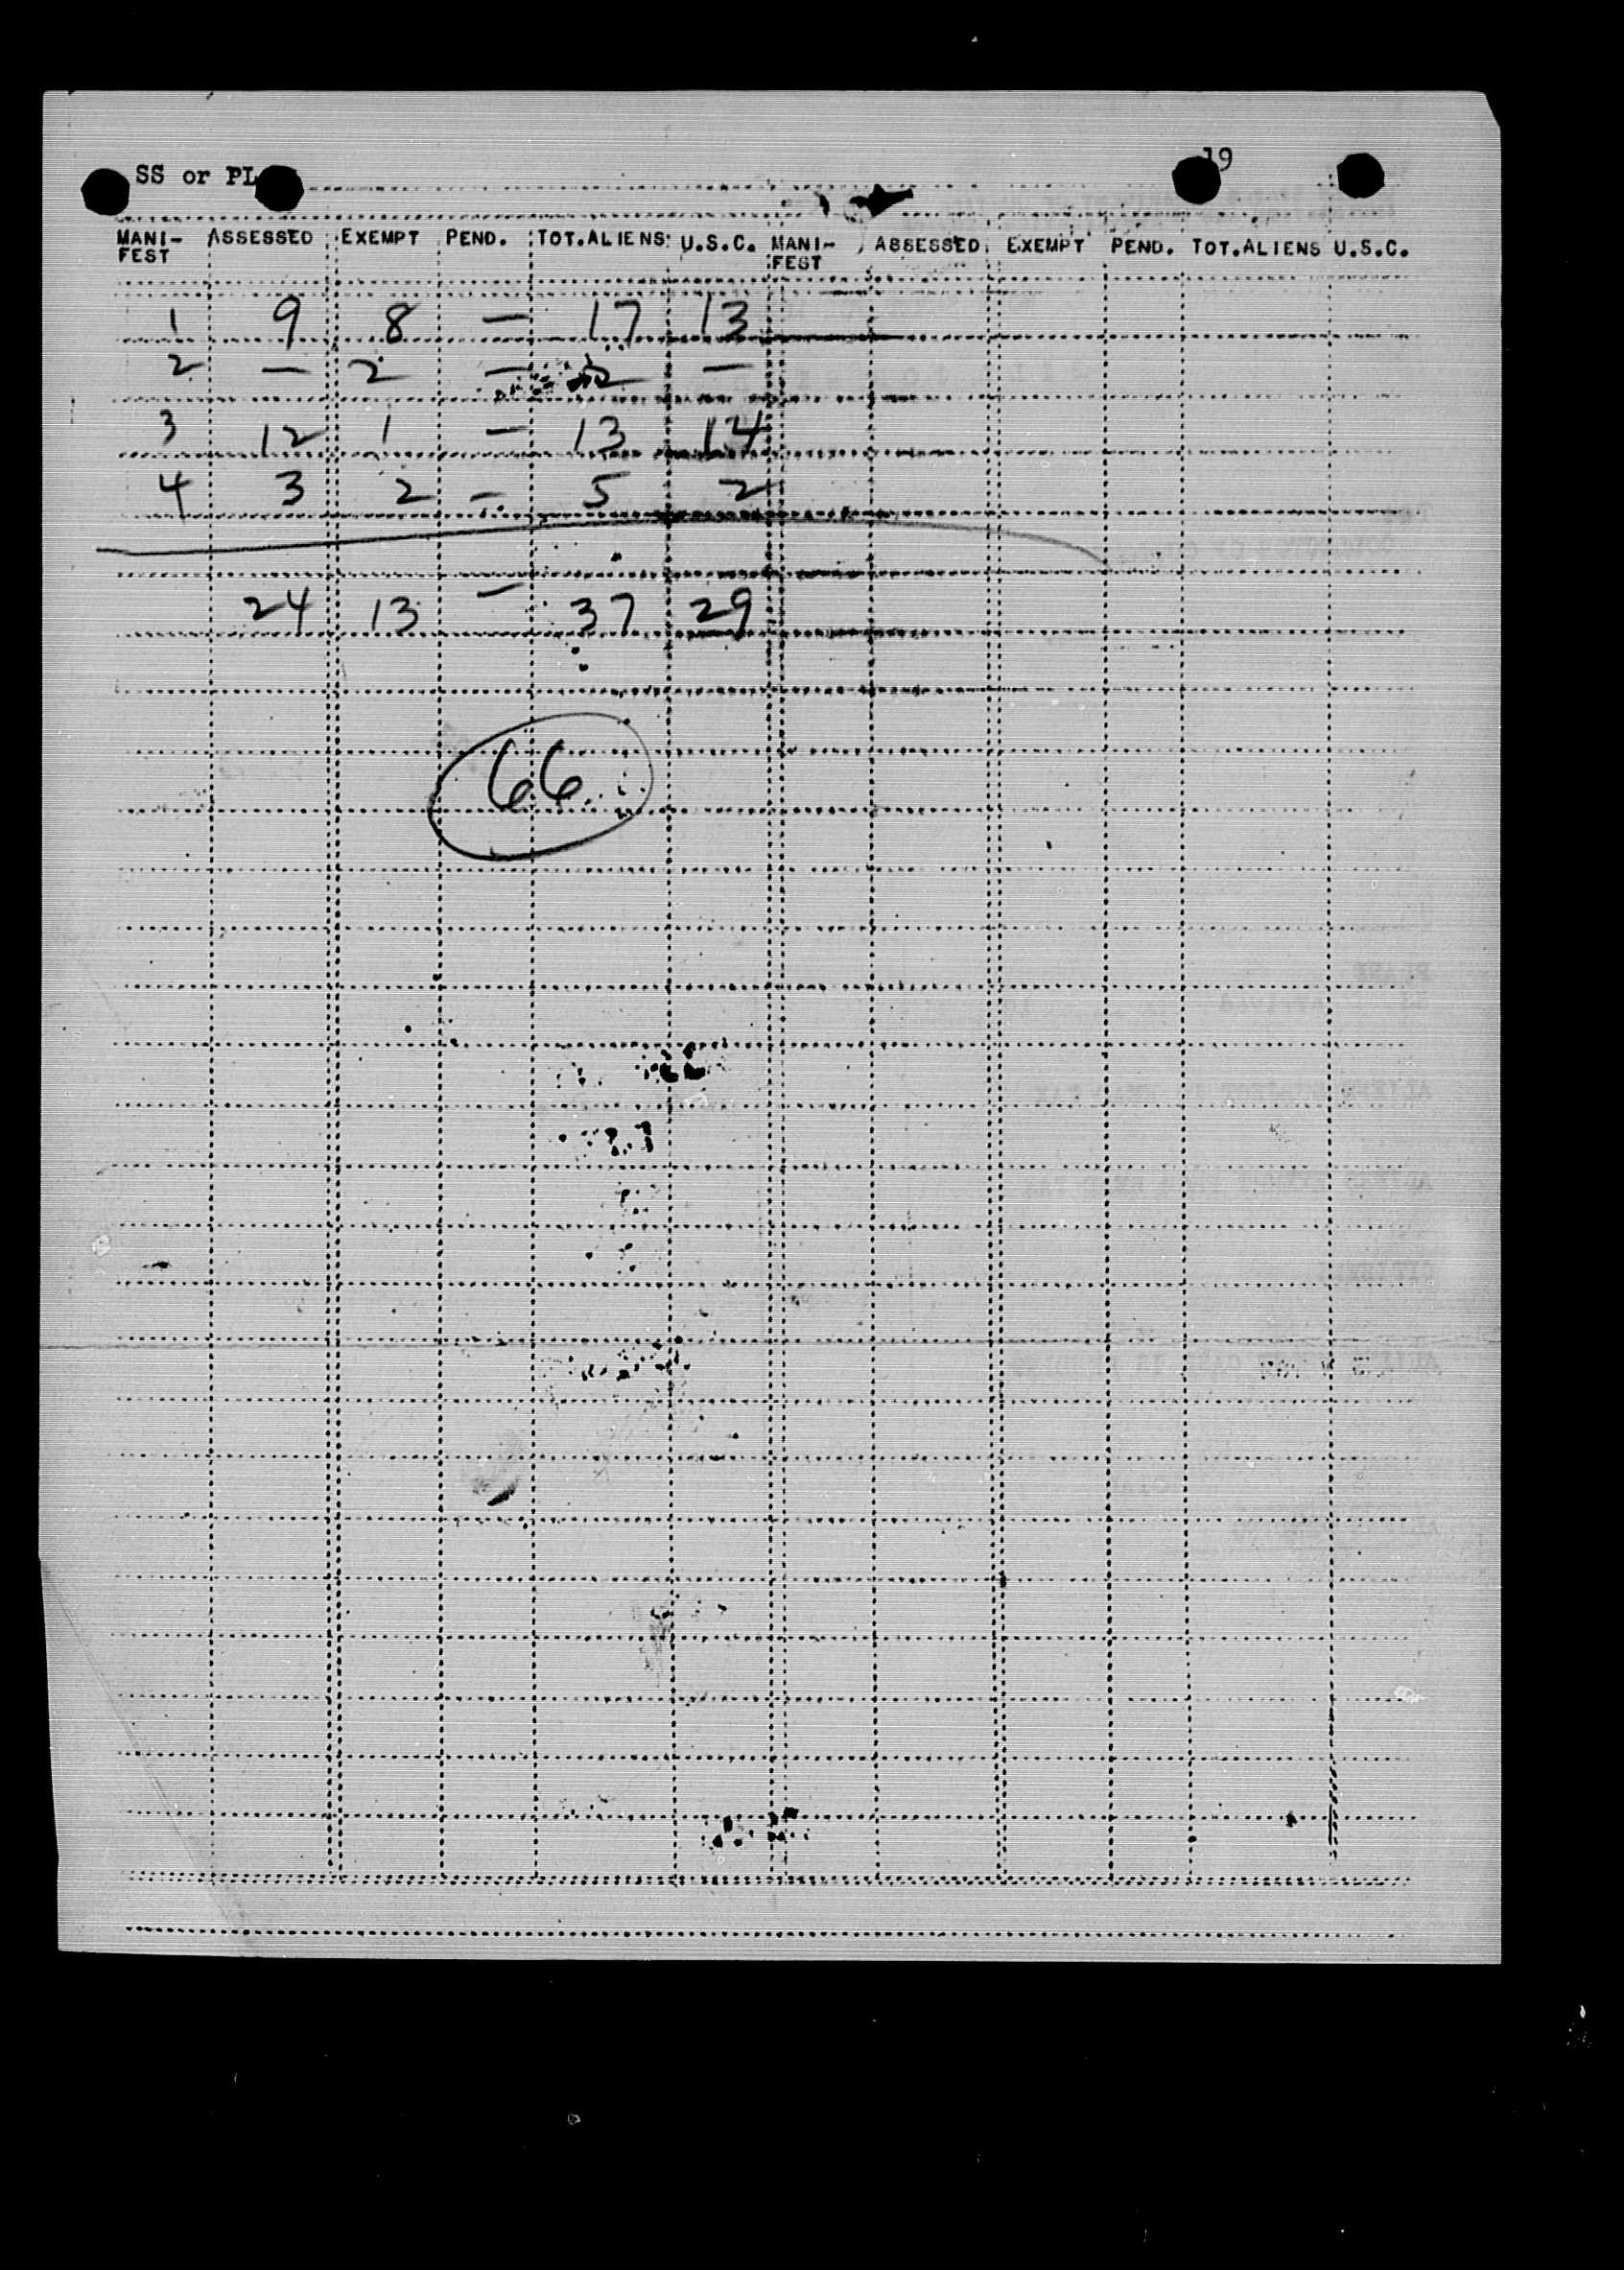 SS or PL 19
MANI- ASSESSED EXEMPT PEND. TOT.ALIENS U.S.C. MANI- ASSESSED EXEMPT PEND. TOT.ALIENS U.S.C.
FEST FEST
1 9 8 — 17 13
2 — 2 — 2 —
3 12 1 — 13 14
4 3 2 — 5 2
24 13 — 37 29
66